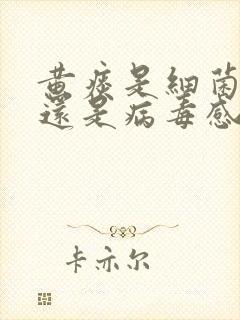 黄痰是細菌
還是病毒感
卡亦尔